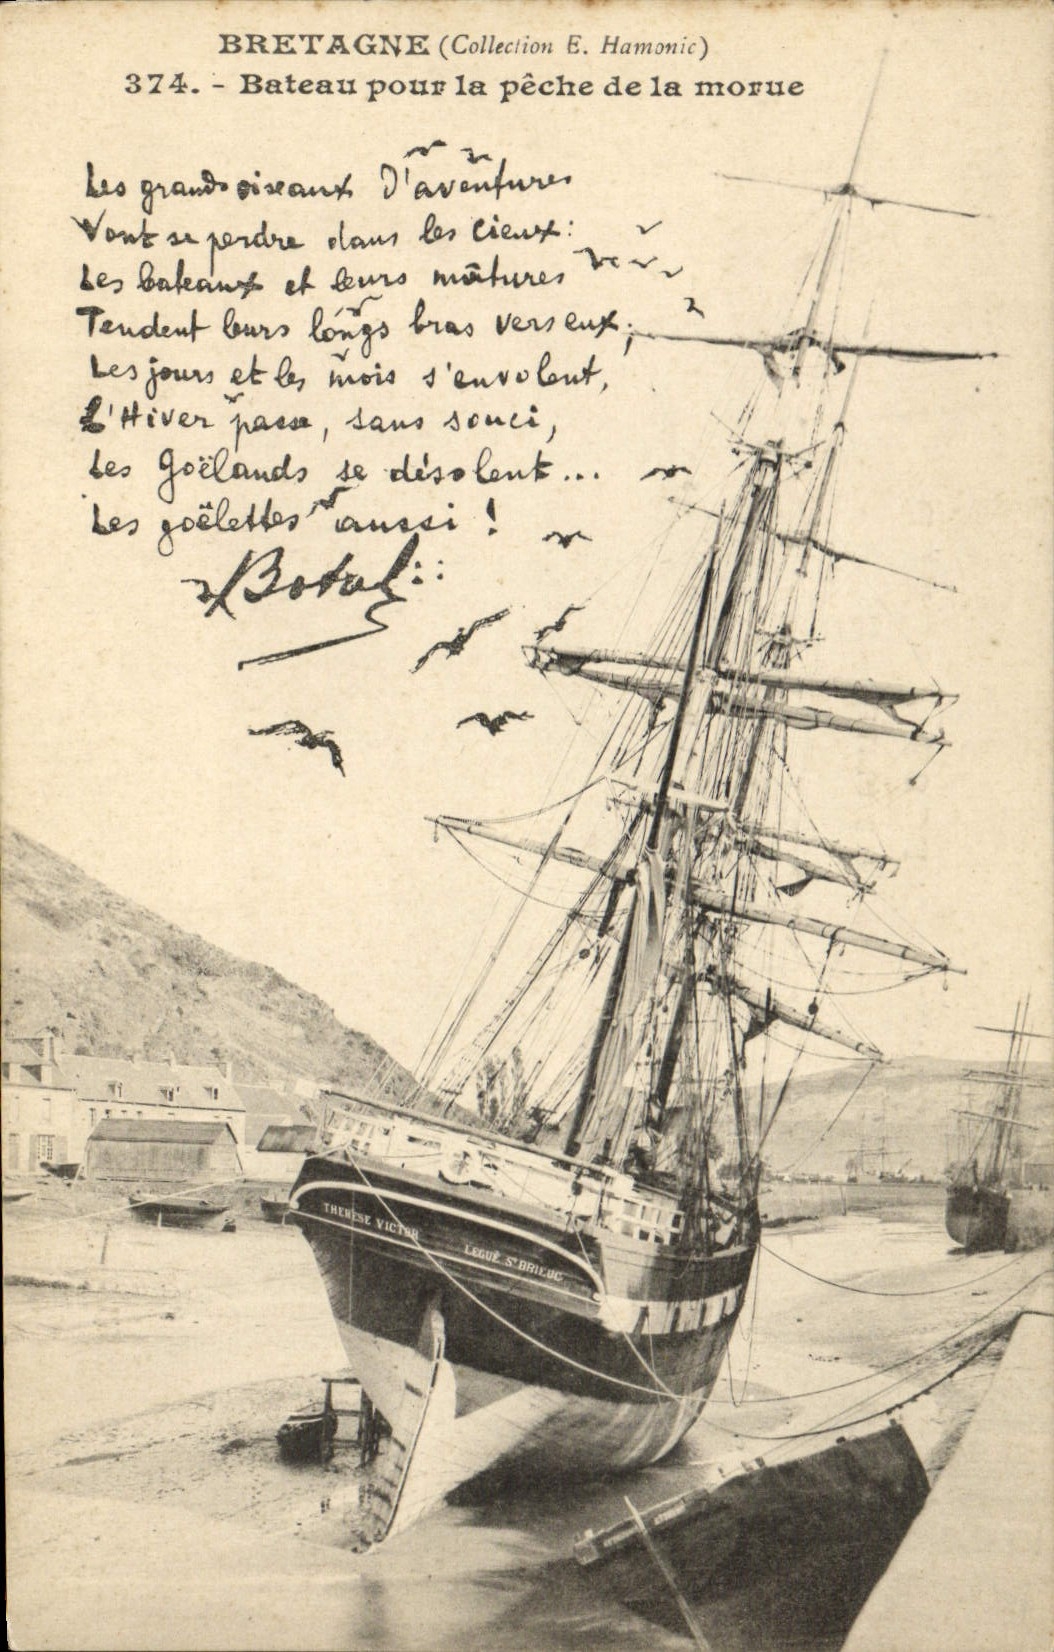 BRETAGNE (Collection E. Hamonic)
374. - Bateau pour la pêche de la morue
Les grands oiseaux D'aventures
Vont se perdre dans les cieux :
Les bateaux et leurs mâtures
Tendent leurs longs bras vers eux ;
Les jours et les mois s'envolent,
L'Hiver passe, sans souci,
Les Goëlands se désolent...
Les goëlettes aussi !
Botrel
THERESE VICTOR
LEGUÉ St BRIEUC